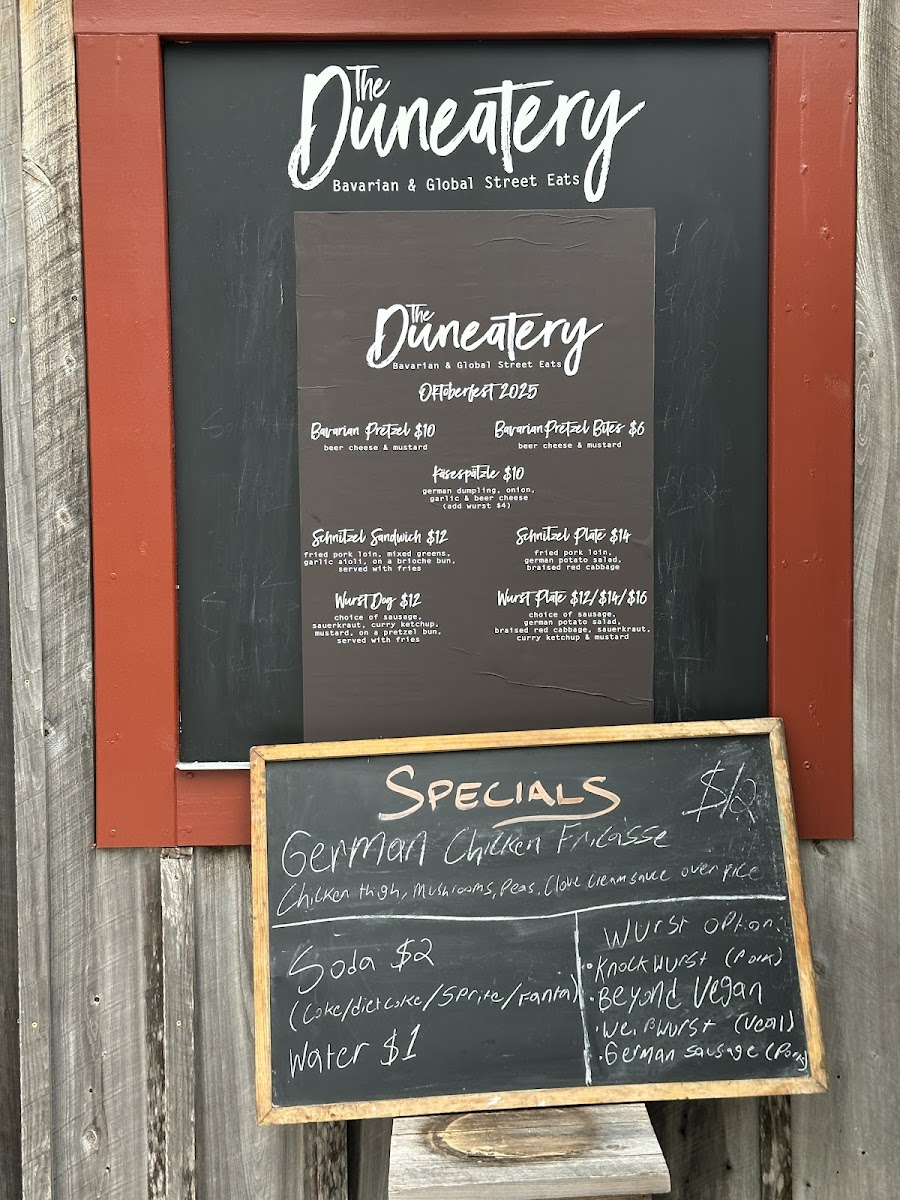 The
Duneatery
Bavarian & Global Street Eats
The
Duneatery
Bavarian & Global Street Eats
Oktoberfest 2025
Bavarian Pretzel $10
beer cheese & mustard
Bavarian Pretzel Bites $6
beer cheese & mustard
Käsespätzle $10
german dumpling, onion,
garlic & beer cheese
(add wurst $4)
Schnitzel Sandwich $12
fried pork loin, mixed greens,
garlic aioli, on a brioche bun,
served with fries
Schnitzel Plate $14
fried pork loin,
german potato salad,
braised red cabbage
Wurst Dog $12
choice of sausage,
sauerkraut, curry ketchup,
mustard, on a pretzel bun,
served with fries
Wurst Plate $12/$14/$16
choice of sausage,
german potato salad,
braised red cabbage, sauerkraut,
curry ketchup & mustard
SPECIALS
$12
German Chicken Fricasse
Chicken thigh, Mushrooms, Peas, Clove cream sauce over rice
Soda $2
(Coke/diet coke/Sprite/Fanta)
Water $1
Wurst option.
•Knockwurst (Pork)
•Beyond Vegan
•Weißwurst (Veal)
•German sausage (Pork)